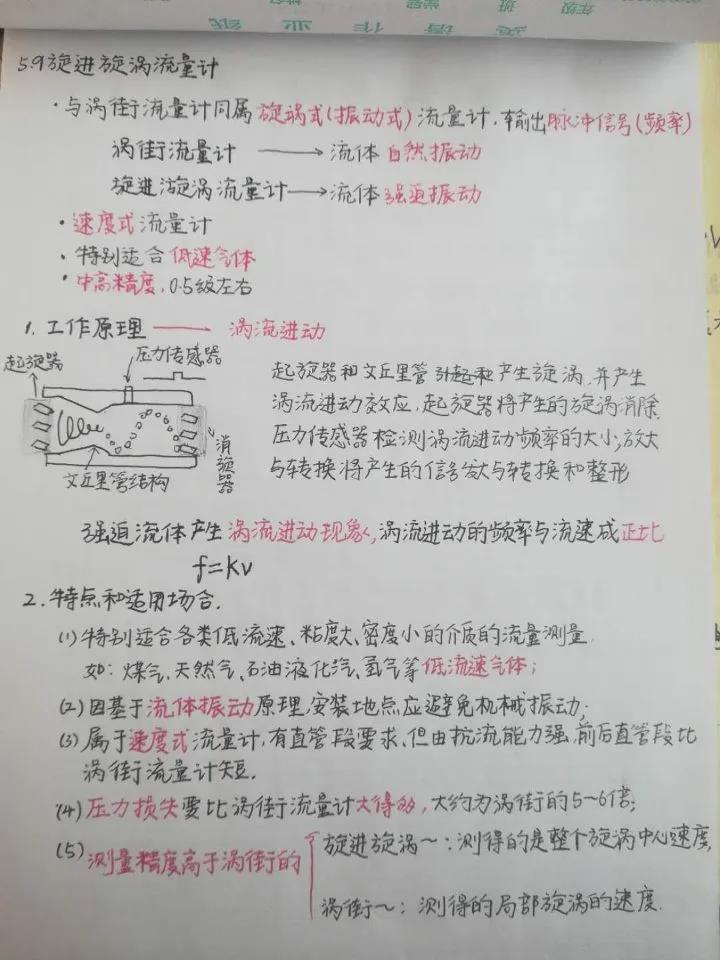 5.9旋进旋涡流量计
·与涡街流量计同属旋涡式(振动式)流量计,输出脉冲信号(频率)
涡街流量计 → 流体自然振动
旋进旋涡流量计 → 流体强迫振动
·速度式流量计
·特别适合低速气体
·中高精度,0.5级左右
1. 工作原理 → 涡流进动
起旋器
压力传感器
消旋器
文丘里管结构
起旋器和文丘里管引起和产生旋涡,并产生
涡流进动效应,起旋器将产生的旋涡消除.
压力传感器检测涡流进动频率的大小,放大
与转换将产生的信号放大与转换和整形
强迫流体产生涡流进动现象,涡流进动的频率与流速成正比
f=Kv
2.特点和适用场合.
(1)特别适合各类低流速、粘度大、密度小的介质的流量测量.
如:煤气、天然气、石油液化汽、氢气等低流速气体;
(2)因基于流体振动原理,安装地点应避免机械振动;
(3)属于速度式流量计,有直管段要求,但由抗流能力强,前后直管段比
涡街流量计短.
(4)压力损失要比涡街流量计大得多,大约为涡街的5~6倍;
(5)测量精度高于涡街的
旋进旋涡~:测得的是整个旋涡中心速度,
涡街~:测得的局部旋涡的速度.